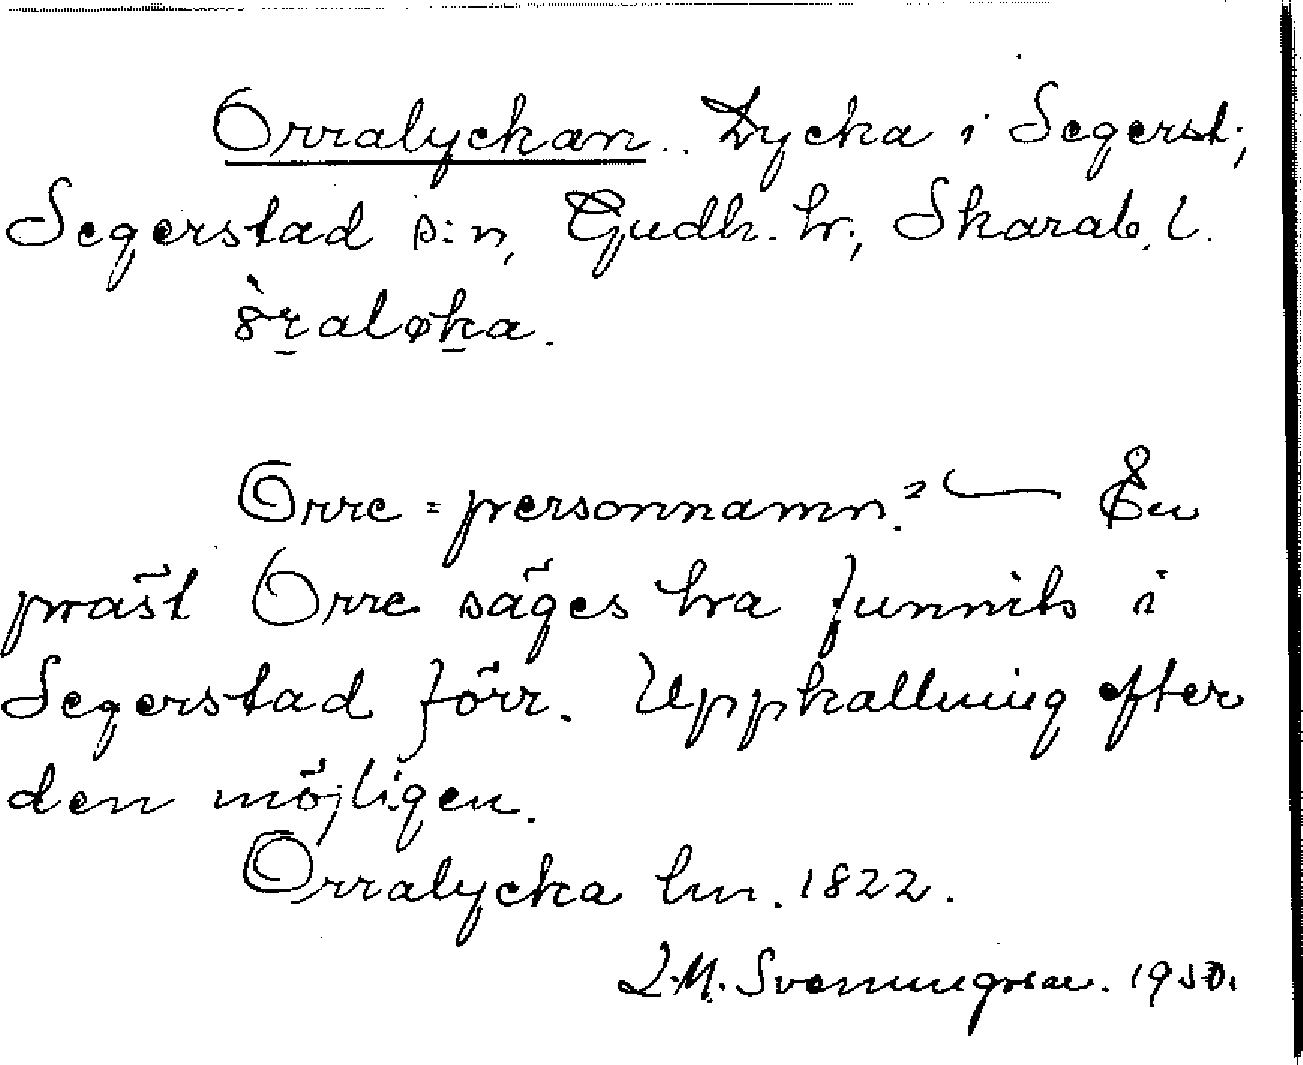 Orralyckan. Lycka i Segerst;
Segerstad s:n, Gudh. hr., Skarab. l.
8̀r̠aløk̠a.
Orre = personnamn? — En
präst Orre säges ha funnits i
Segerstad förr. Uppkallning efter
den möjligen.
Orralycka hm. 1822.
L.M. Svenungsson. 1950.